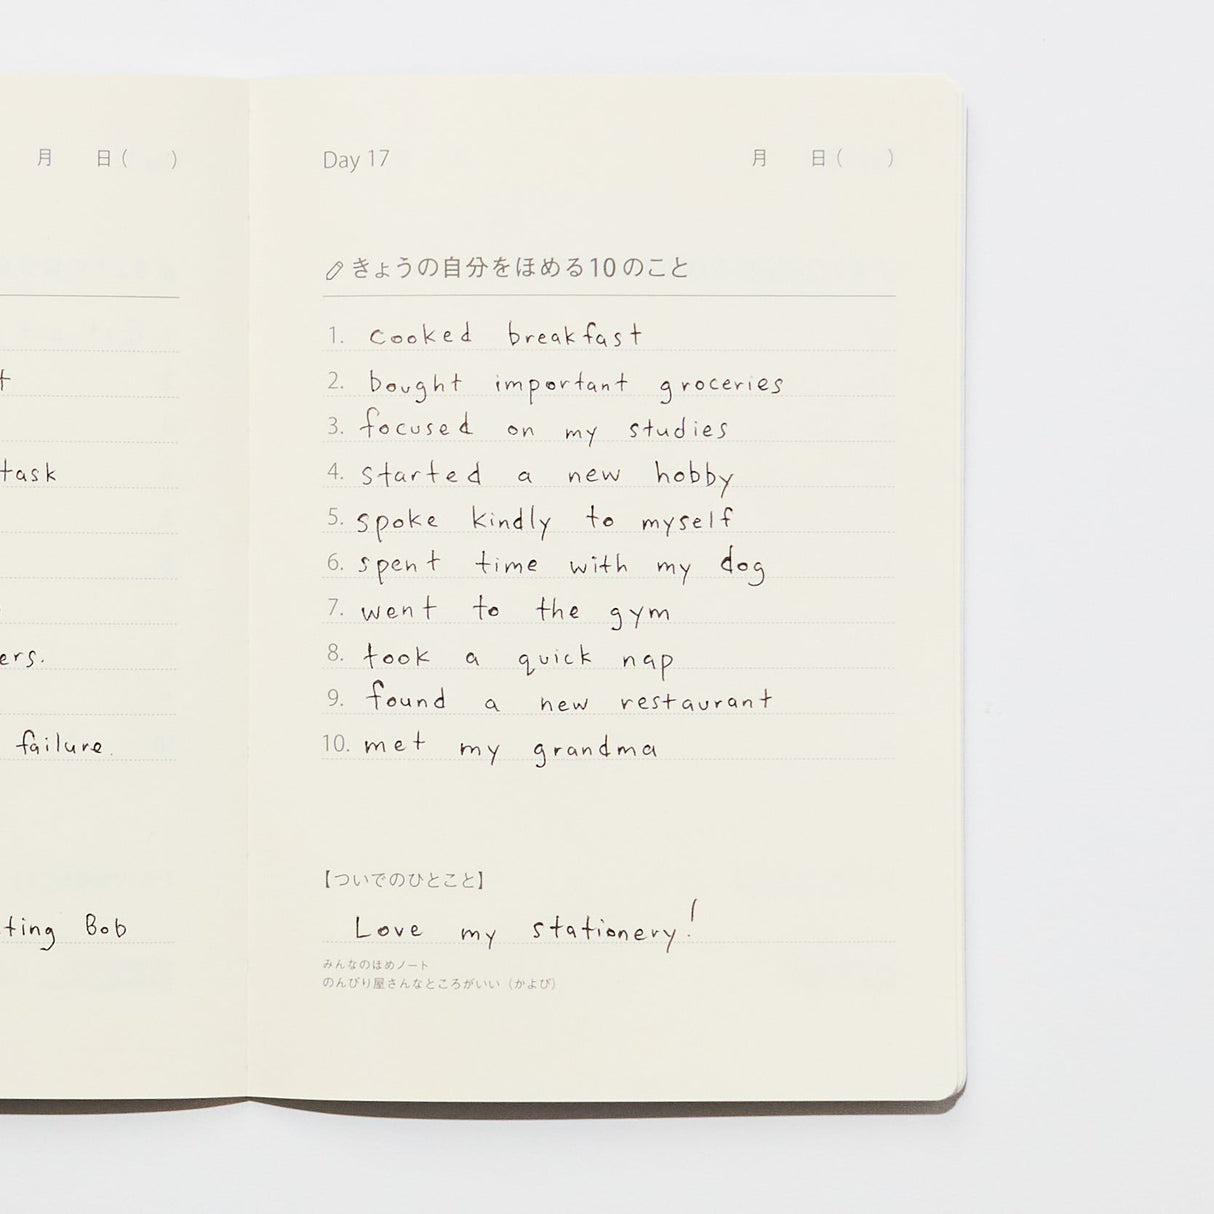 月 日 ( )
t
task
ers.
failure.
ting Bob
Day 17 月 日 ( )
きょうの自分をほめる10のこと
1. cooked breakfast
2. bought important groceries
3. focused on my studies
4. started a new hobby
5. spoke kindly to myself
6. spent time with my dog
7. went to the gym
8. took a quick nap
9. found a new restaurant
10. met my grandma
【ついでのひとこと】
Love my stationery!
みんなのほめノート
のんびり屋さんなところがいい（かよぴ）